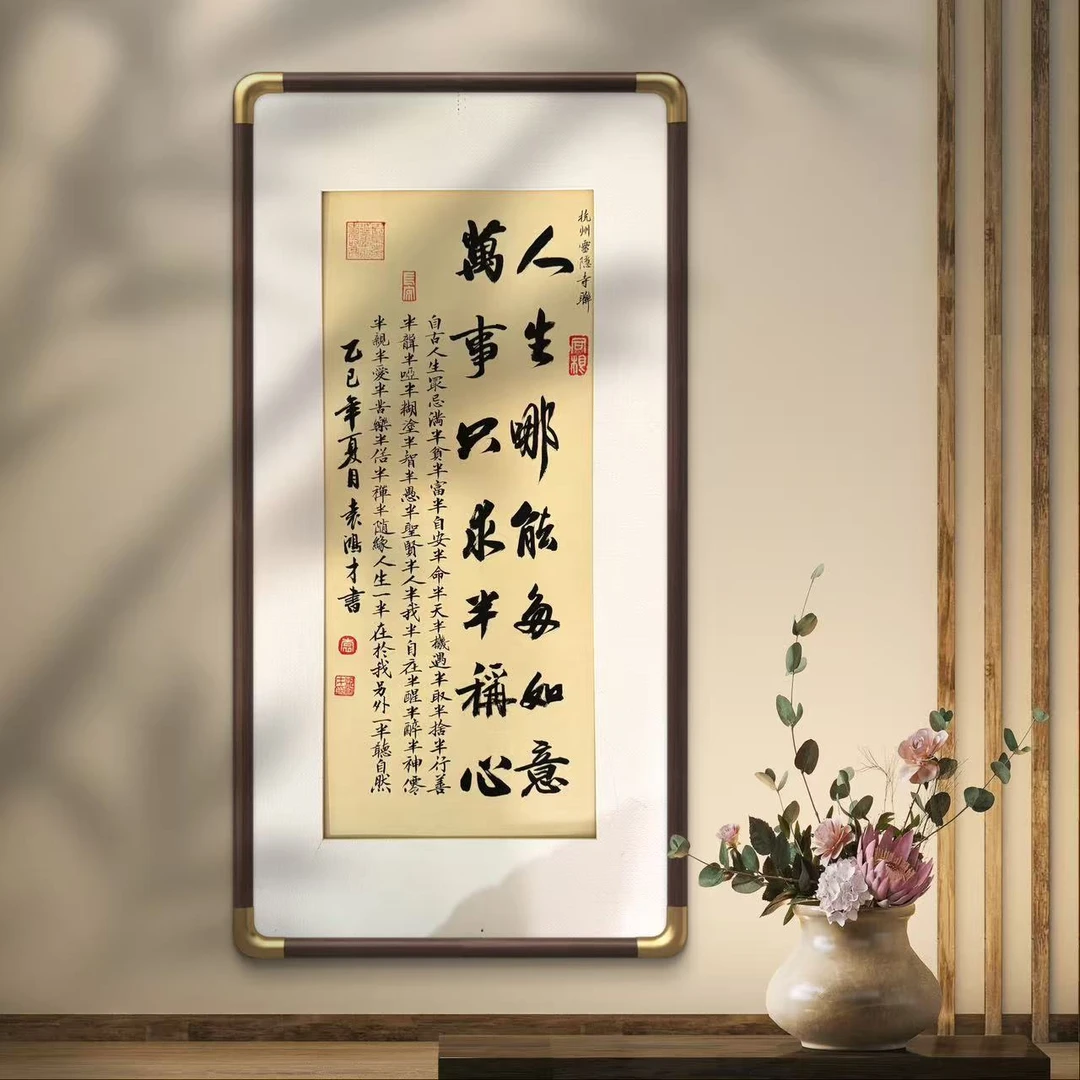 杭州靈隱寺聯
人生哪能每如意
萬事只求半稱心
自古人生最忌滿半貧半富半自安半命半天半機遇半取半捨半行善
半聾半啞半糊塗半智半愚半聖賢半人半我半自在半醒半醉半神僊
半親半愛半苦樂半俗半禪半隨緣人生一半在於我另外一半聽自然
乙巳年夏月袁鴻才書